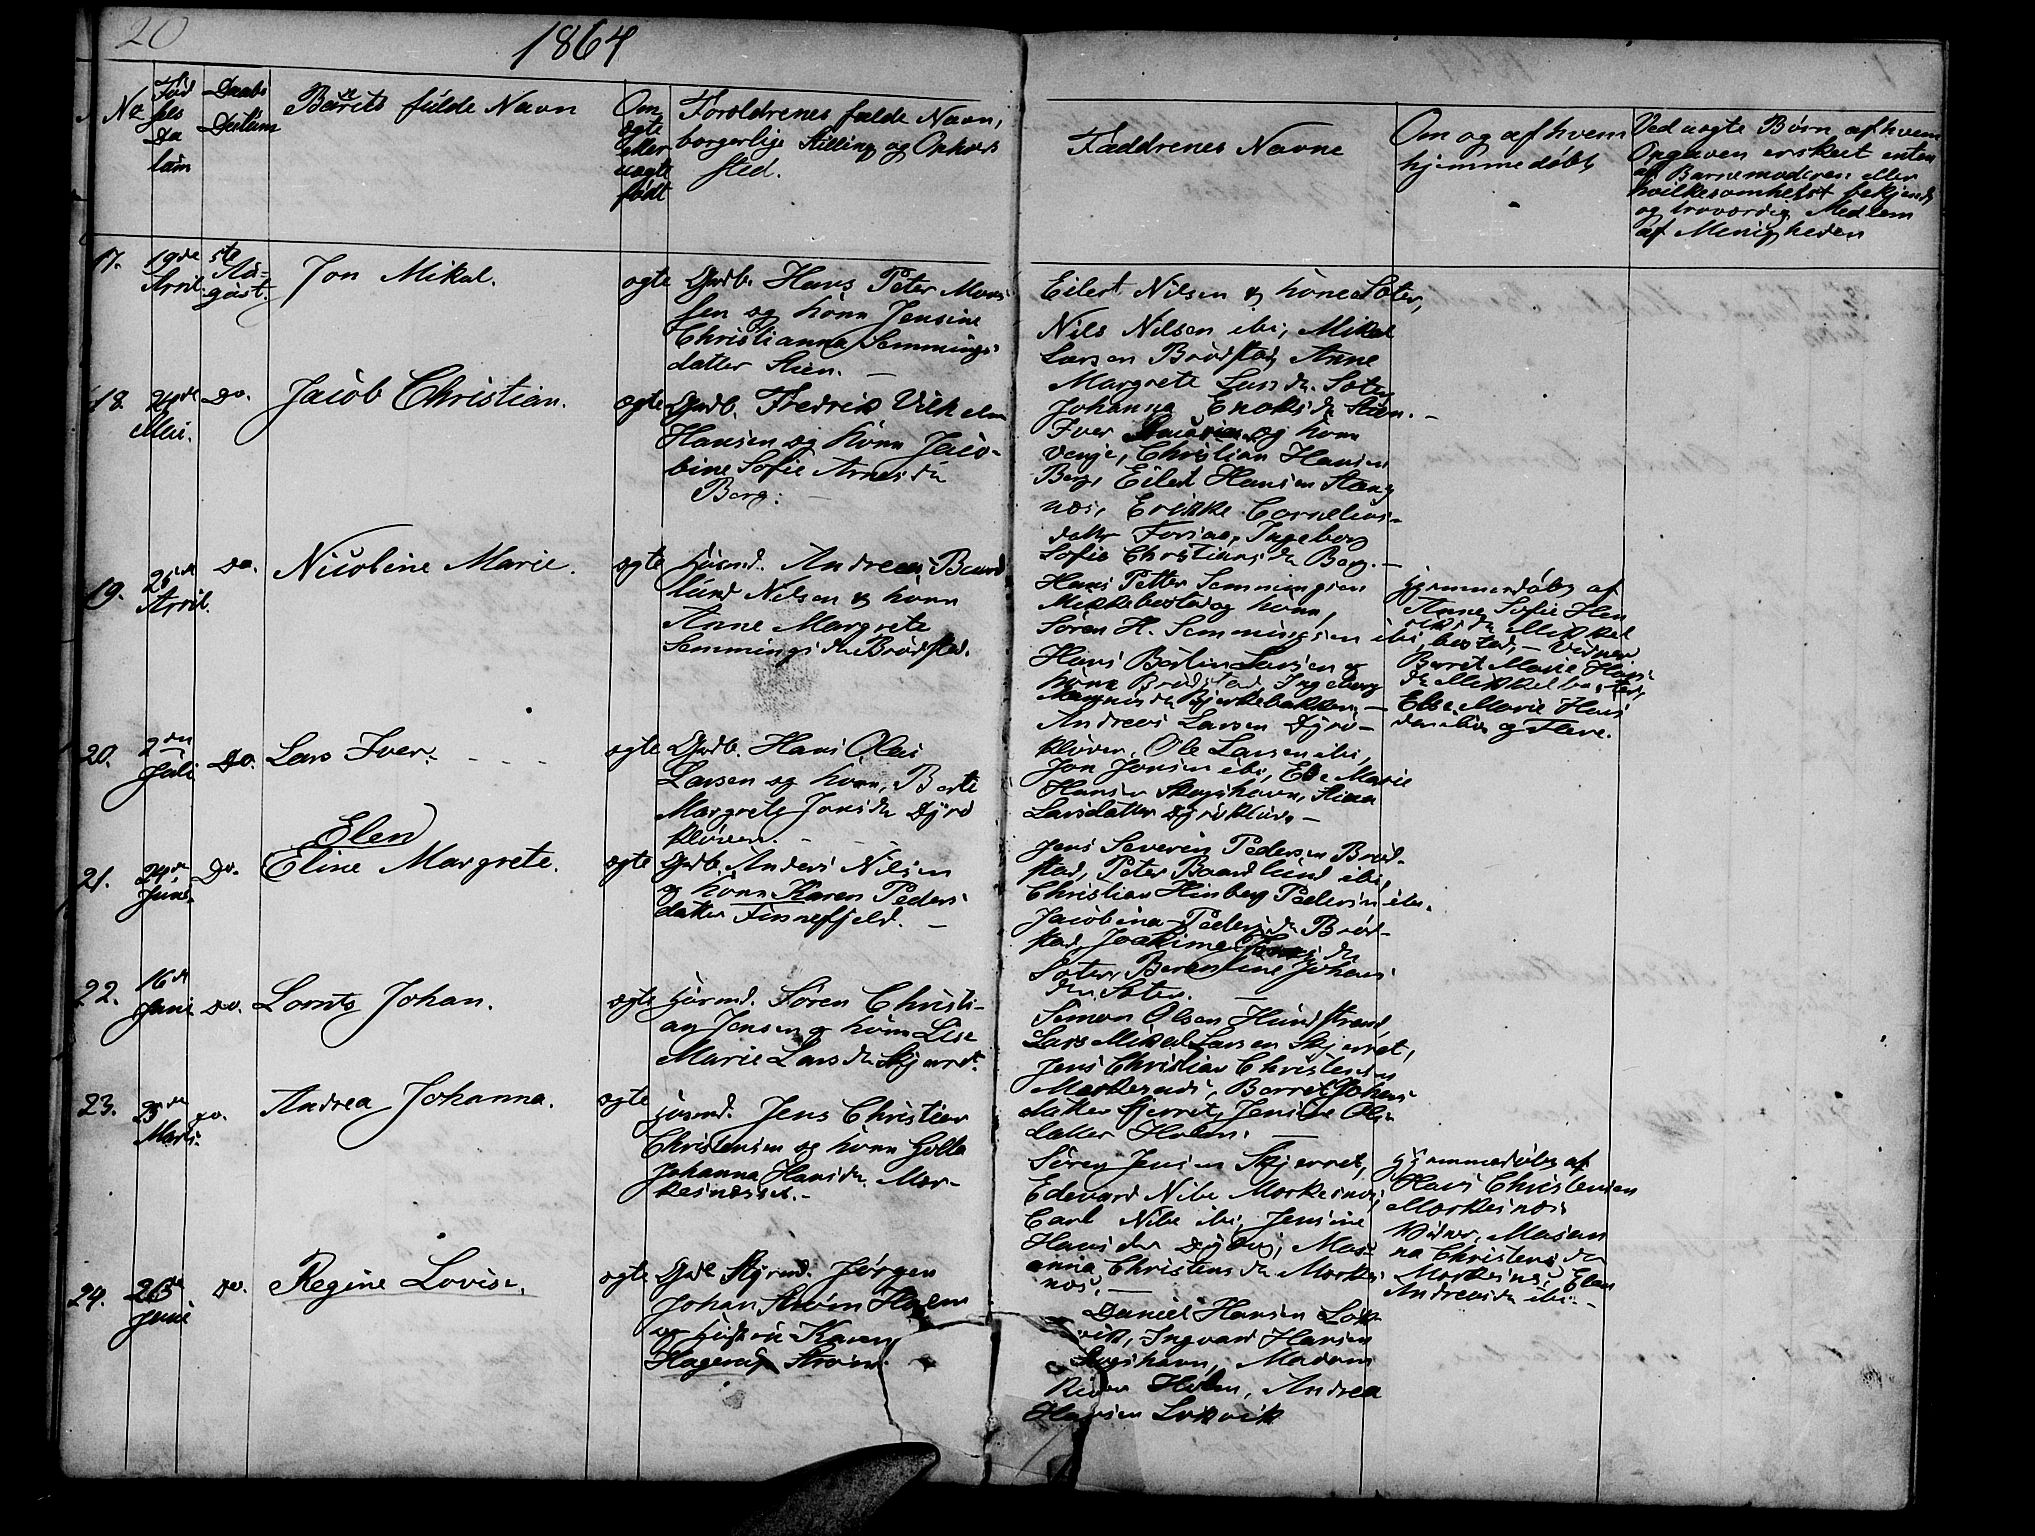 20
1864
No
Fød
sels
Da
tum
Daabs
Datum
Barnets fulde Navn
Om
ægte
eller
uægte
født
Foræld­renes fulde Navn,
borgerlige Stilling og Opholds
sted.
Faddrenes Navne
Om og af hvem
hjemmedøbt
Ved uægte Børn, af hvem
Opgaven er skeet enten
af Barnemoderen eller
hvilkesomhelst bekjendt
og troværdig Medlem
af Menigheden
17.
19de
April
Au-
gust.
Jon Mikal.
ægte
Gaardb. Hans Peter Mons
sen og Kone Jensine
Christianna Semmings-
datter Steen. —
Eilert Nilsen og kone Sæter,
Nils Nilsen ibi, Mikal
Larsen Brødstad, Anne
Margrete Larsda. Sæter
Johanna Enoksda Steen. —
18.
24de
Mai.
Do.
Jacob Christian.
ægte
Gaardb. Fredrik Vilhelm
Hansen og Kone Jaco-
bine Sofie Arnesda
Berg. —
Iver og kone
Venje, Christian Hansen
Berg, Eilert Hansen Stang
næs, Erikke Cornelius-
datter Forsæe, Ingeborg
Sofie Christiansda Berg. —
19.
25de
April.
Do.
Nicoline Marie.
ægte
Huusmd. Andreas Baard
lund Nilsen og kone
Anne Margrete
Semmingsda Brødstad.
Hans Petter Semmingsen
Mikkebostad og kone,
Søren H. Semmingsen ibi,
Hans Bertin Larsen og
kone Brødstad, Ingeborg
Magnusda Bjerkebakken. —
Hjemmedøbt af
Anne Sofie Hen
riksda Mikkel
bostad, — Vidner
Beret Marie Hans
da Mikkelbostad,
Else Marie Hans
da ibi og Flere.
20.
2den
Juli
Do.
Lars Iver. - - - -
ægte
Gaardb. Hans Olai
Larsen og kone, Berte
Margrete Jonsda Dyrø
kløven. - -
Andreas Larsen Dyrø-
kløven, Ole Larsen ibi,
Jon Jonsen ibi, Else Marie
Hansen Skogshavn, Stina
Larsdatter Dyrøkløv —
21.
24de
Juni.
Do.
Elen
Eline Margrete.
ægte
Gaardb. Anders Nilsen
og Kone Karen Peders-
datter Finnefjeld. —
Jens Severin Pedersen Brød-
stad, Peter Baardlund ibi,
Christian Hinberg Pedersen ibi.
Jacobina Pedersda Brød-
stad, Joakime da
Sæter, Berentine Johans
da Sæter. —
22.
16de
Juni
Do.
Lornts Johan.
ægte
Huusmd. Søren Christi-
an Jensen og kone Lise
Marie Larsda Skjerret.
Simon Olsen Hundstrand,
Lars Mikal Larsen Skjerret,
Jens Christian Christensen
Mørkesnæs, Berret Johans
datter Skjerret, Jensine Ols-
datter Holm. —
23.
23de
Marts.
Do.
Andrea Johanna.
ægte
Huusmd. Jens Christian
Christensen og kone Golla
Johanna Hansda Mør-
kesnæsset. —
Søren Jensen Skjerret,
Edevard Nibe Mørkesnæs,
Carl Nibe ibi, Jensine
Hansda Dybvig, Mas-
anna Christensda Mørkes
næs. —
Hjemmedøbt af
Hans Christensen
Mørkesnæs.
Vidner, Masan
na Christensda
Mørkesnæs, Elen
Andreasda ibi. —
24.
26de
Juni
Do.
Regine Lovise.
ægte
Skyrmd. Jørgen
Johan Strøm Holm
og Hustru Karen
Hagerup Strøm. —
Daniel Hansen Løk-
vik, Ingvard Hansen
Skogshavn, Madam
Holm, Andrea
Hansen Løkvik